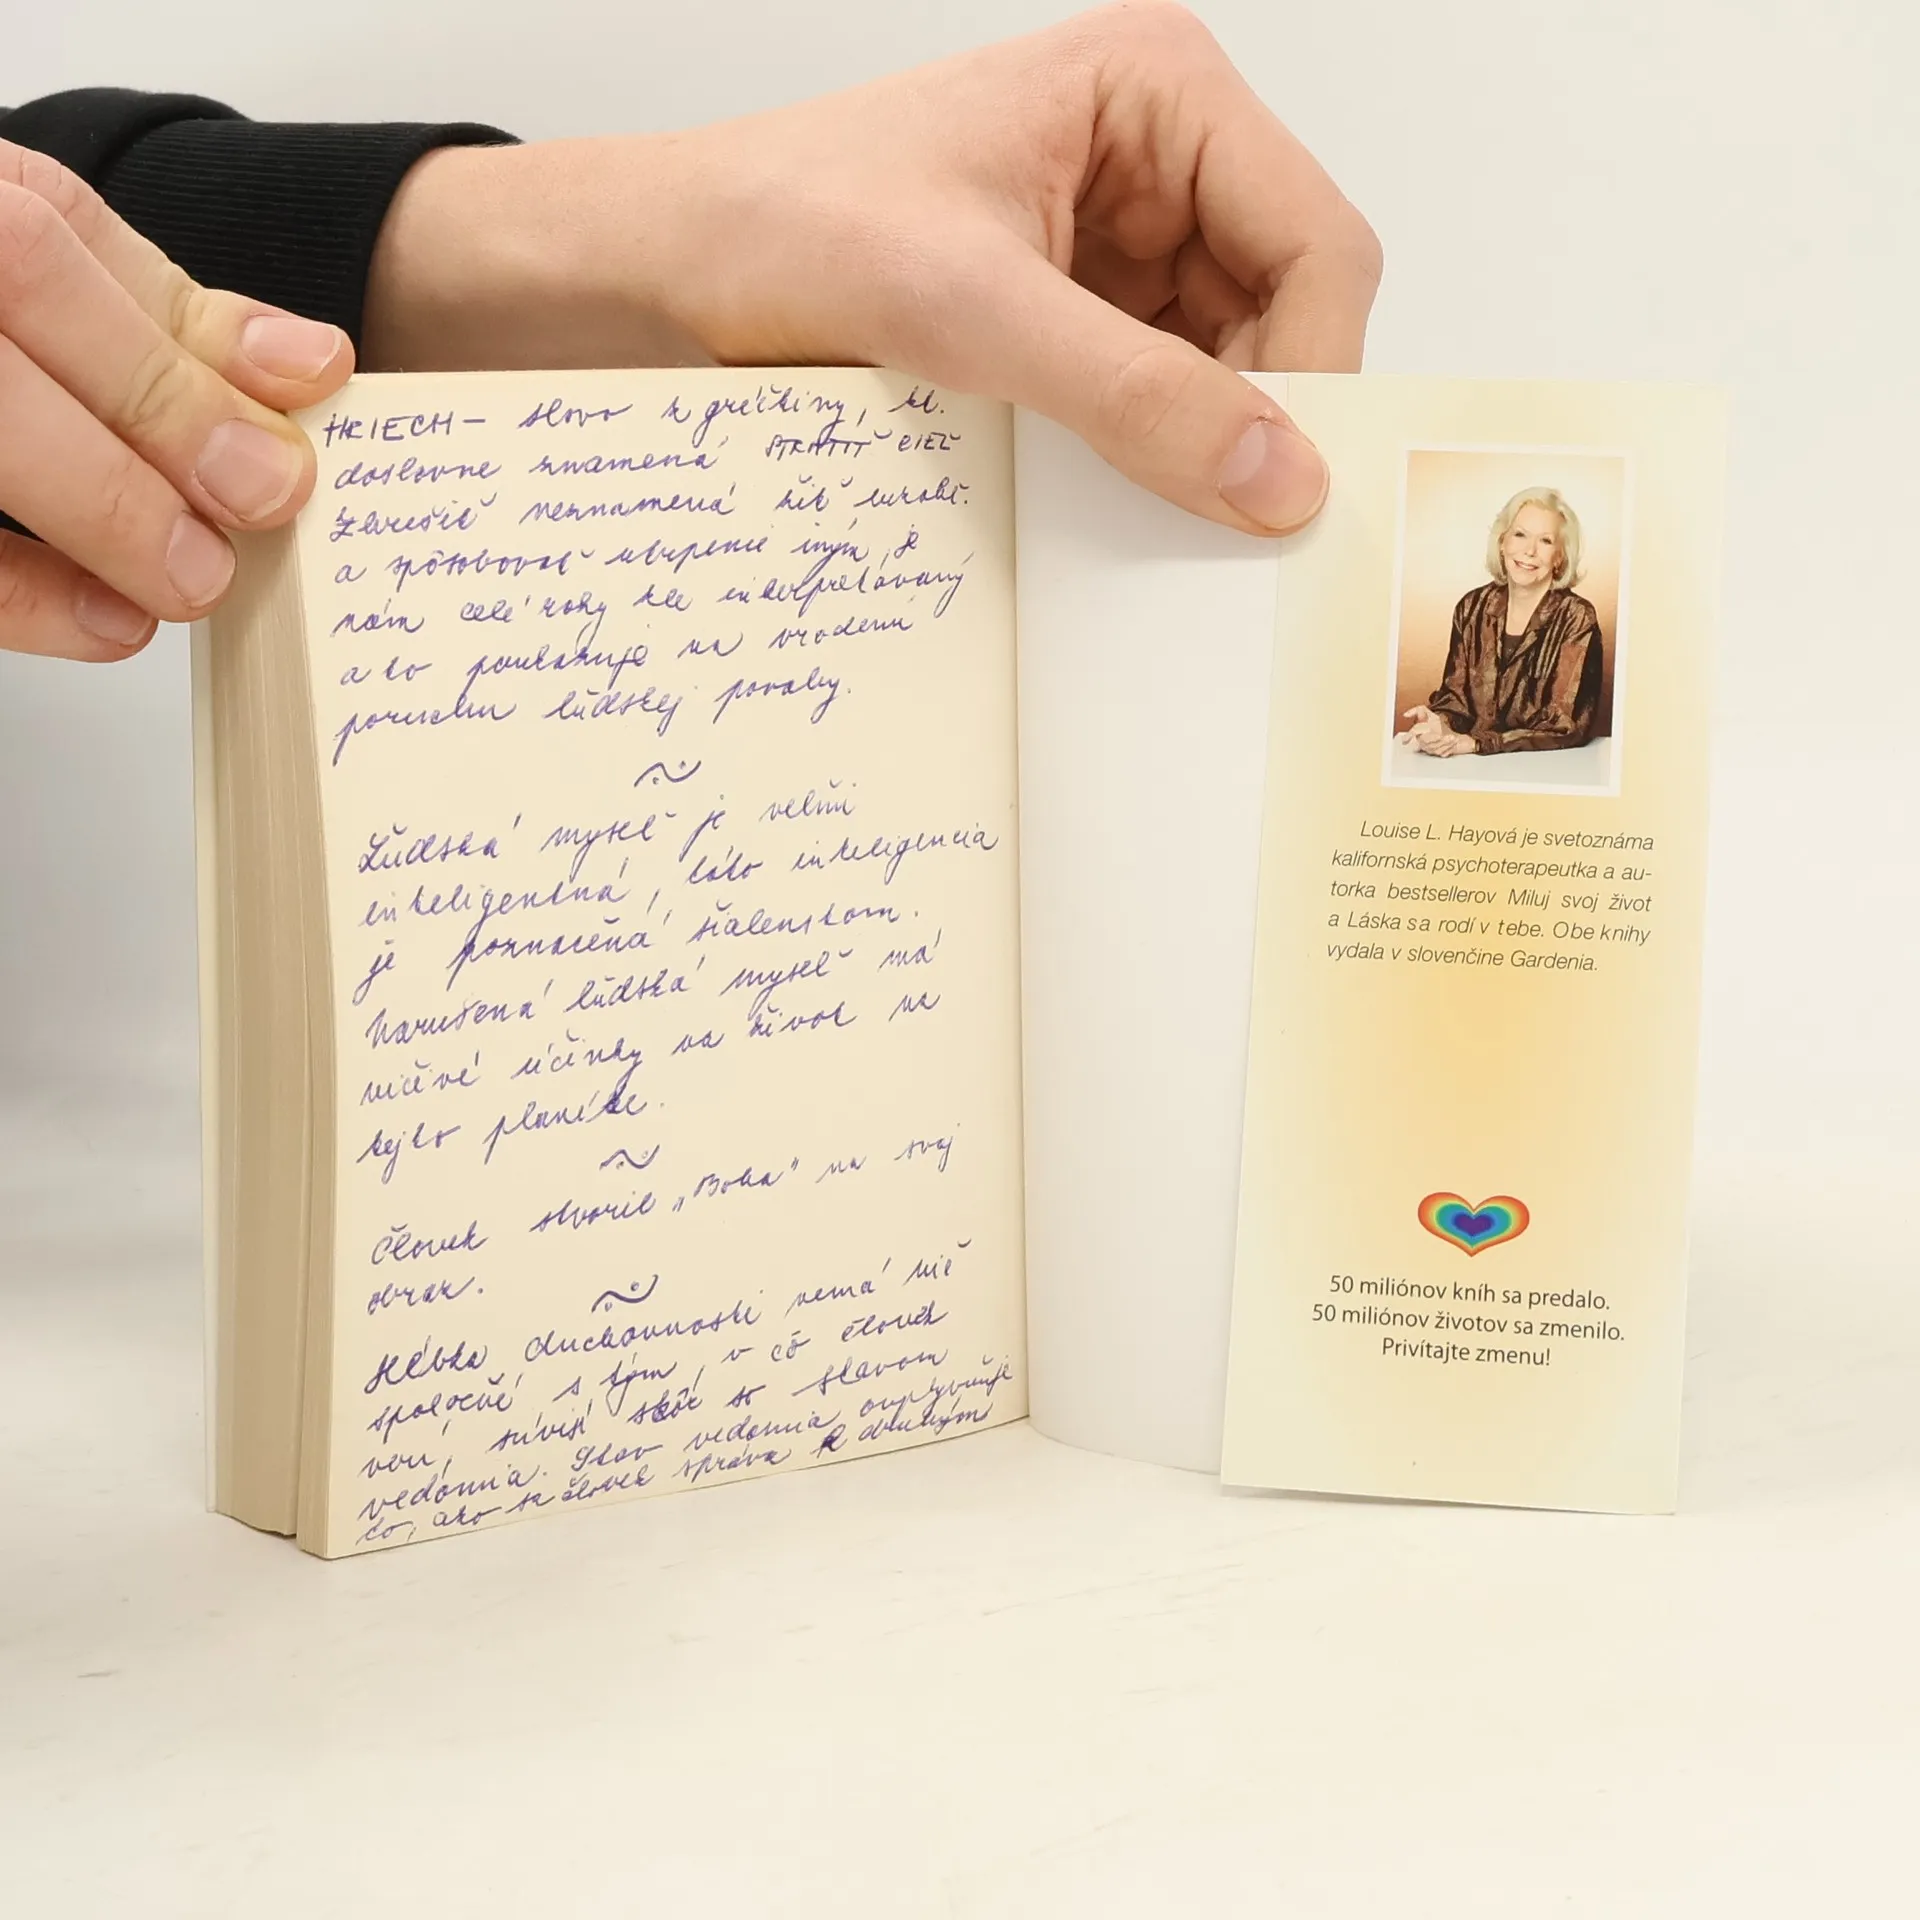 HRIECH – slovo z gréčtiny, kt.
doslovne znamená STRATIŤ CIEĽ
Zhrešiť neznamená žiť
a spôsobovať utrpenie iným, je
nám celé roky zle interpretávaný
a to poukazuje na vrodenú
poruchu ľúdskej povahy.
Ľúdská myseľ je veľmi
inteligentná, táto inteligencia
je poznačená šialenstom.
Narušená ľúdská myseľ má
ničivé účinky na život na
tejto planéte.
Človek stvoril „Boha" na svoj
obraz.
Hĺbka duchovnosti nemá nič
spoločné s tým, v čo človek
verí, súvisí skôr so stavom
vedomia. Stav vedomia ovplyvňuje
to, ako sa človek správa k druhým
Louise L. Hayová je svetoznáma
kalifornská psychoterapeutka a au-
torka bestsellerov Miluj svoj život
a Láska sa rodí v tebe. Obe knihy
vydala v slovenčine Gardenia.
50 miliónov kníh sa predalo.
50 miliónov životov sa zmenilo.
Privítajte zmenu!